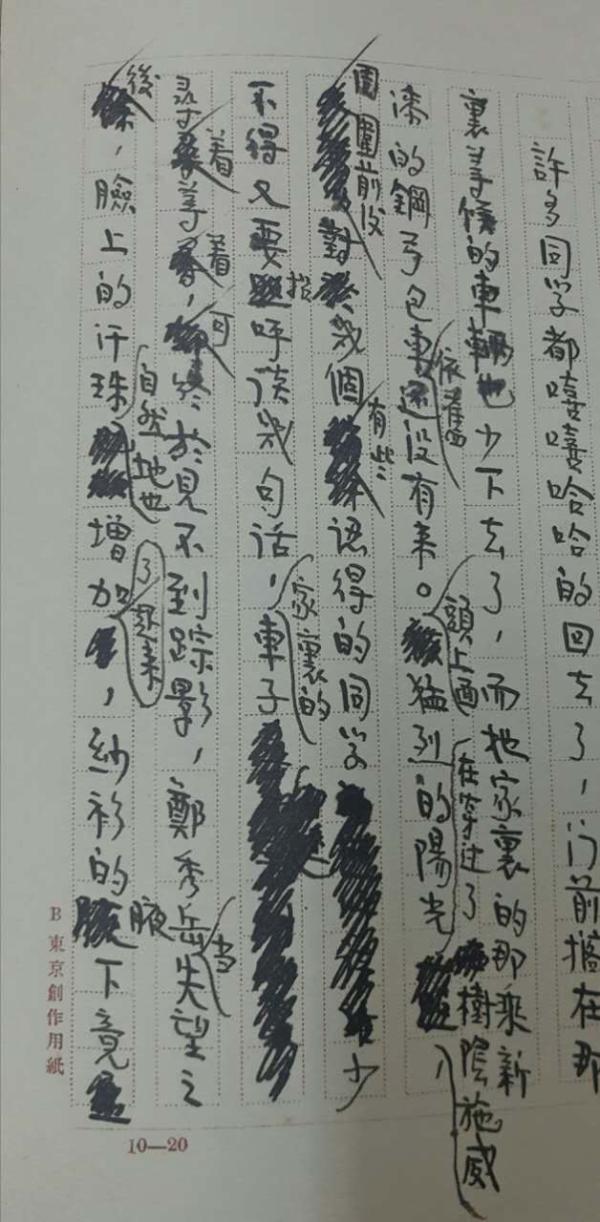 許多同学都嘻嘻哈哈的回去了，门前擱在那
裏等候的車輛也少下去了，而她家裏的那乘新
漆的鋼弓包車依舊還没有来。頭上面猛烈的陽光在穿过了樹陰施威，
團團前後對幾個有些認得的同学少
不得又要招呼談幾句話，家裏的車子
尋着等着，可終於見不到踪影，鄭秀岳当失望之
後，臉上的汗珠自然地也增加了起来，紗衫的腋下竟
B 東京創作用紙
10—20